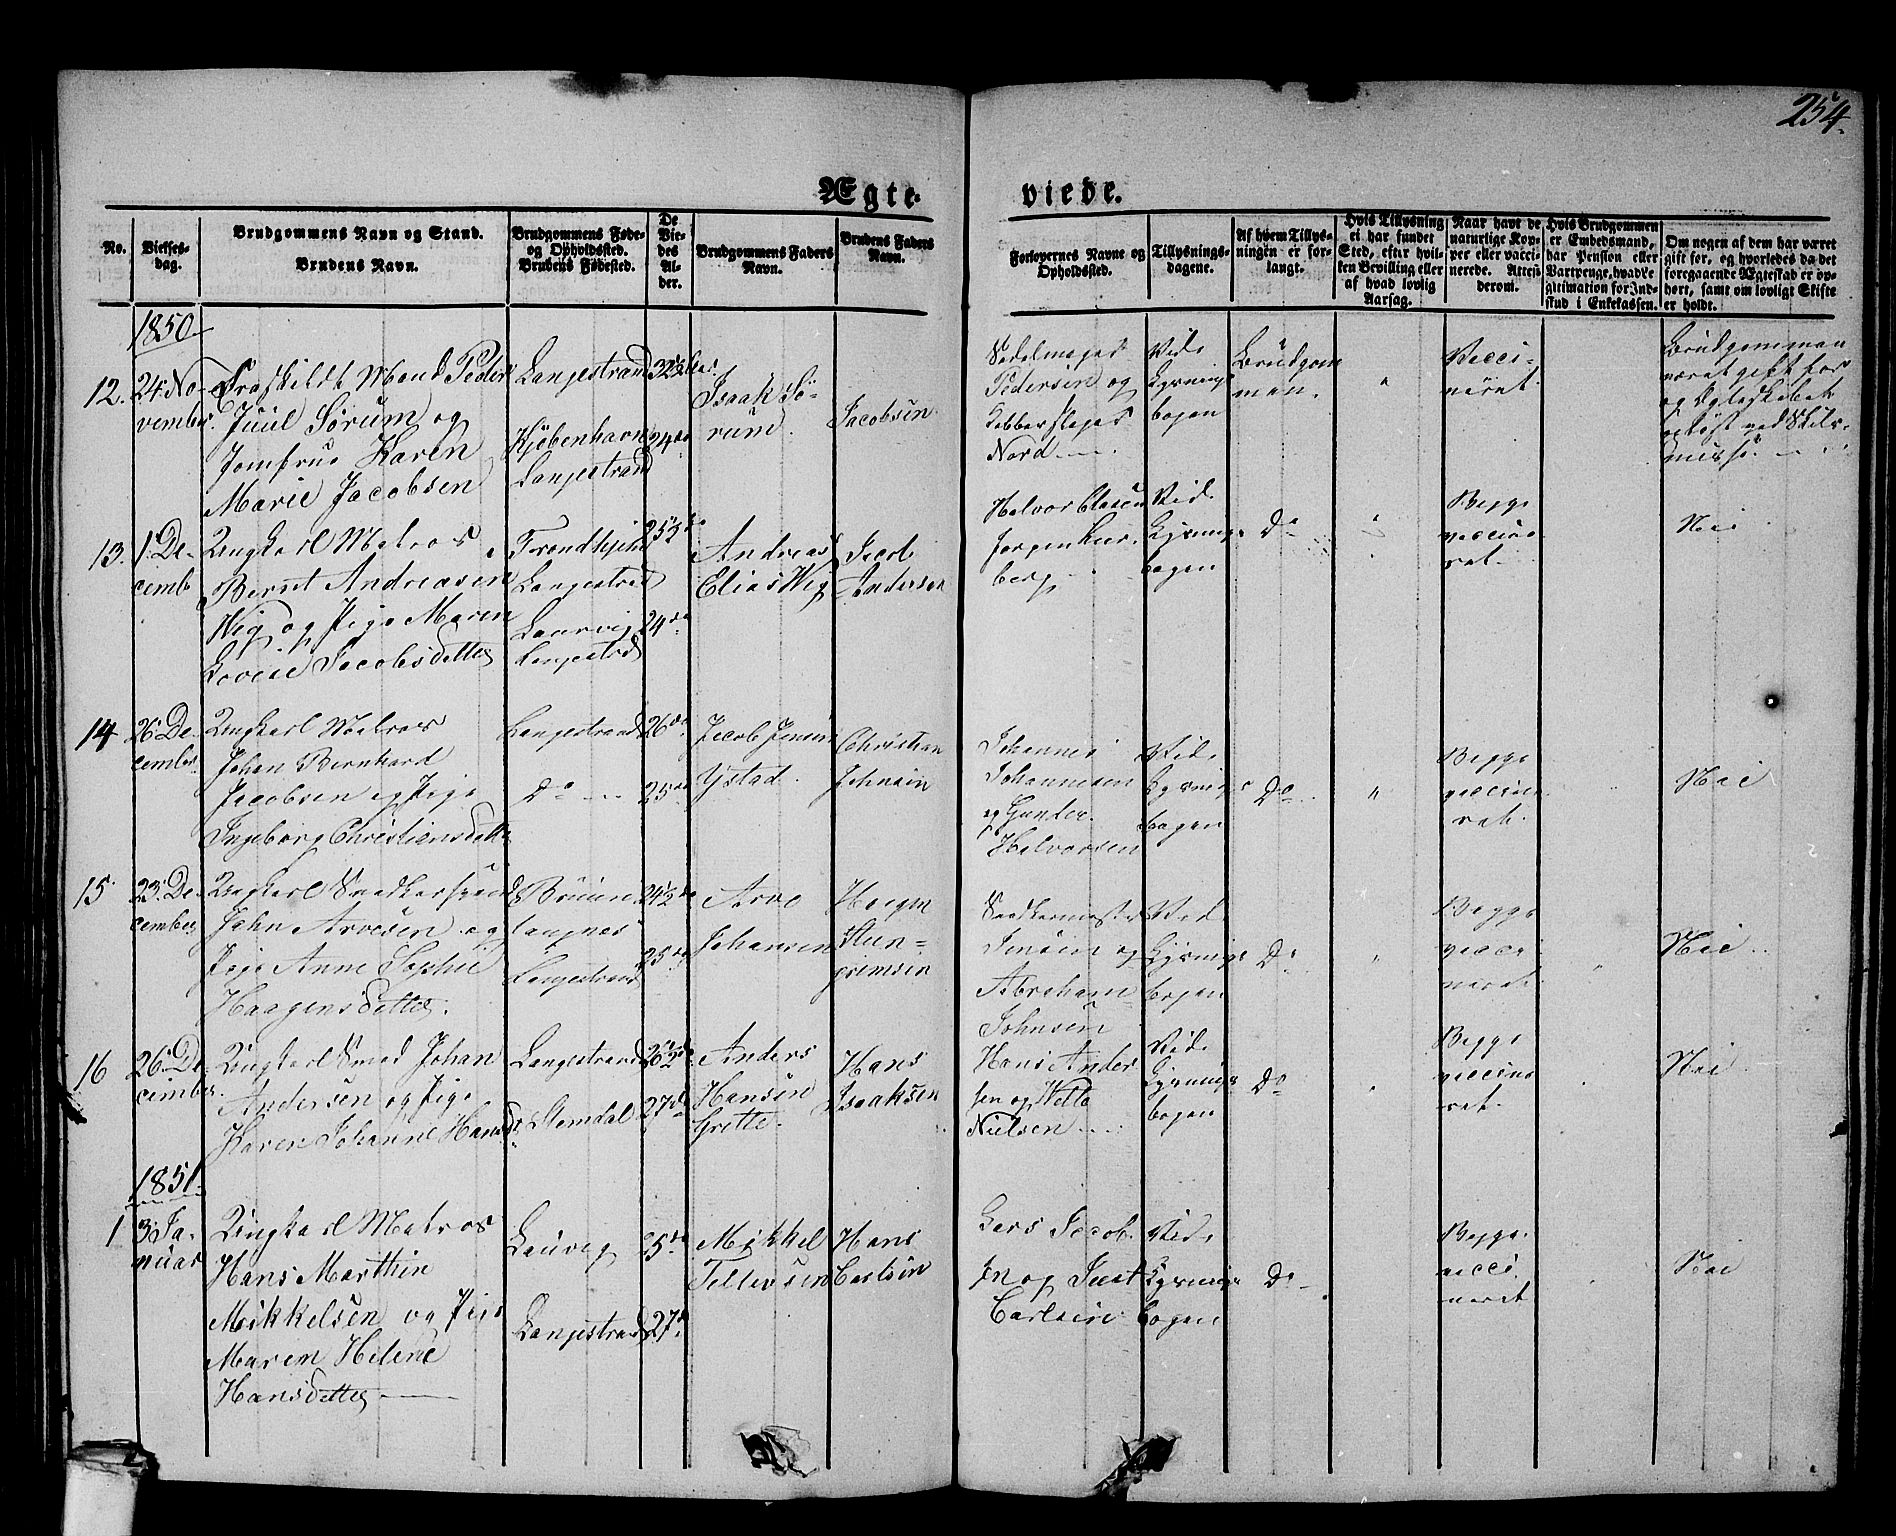 254.
Ægte-
viede.
No.
Vielses-
dag.
Brudgommens Navn og Stand.
Brudens Navn.
Brudgommens Føde-
og Opholdssted.
Brudens Fødested.
De
Vie-
des
Al-
der.
Brudgommens Faders
Navn.
Brudens Faders
Navn.
Forlovernes Navne og
Opholdssted.
Tillysnings-
dagene.
Af hvem Tillys-
ningen er for-
langt.
Hvis Tillysning
ei har fundet
Sted, efter hvil-
ken Bevilling eller
af hvad lovlig
Aarsag.
Naar havt de
naturlige Kop-
per eller vacci-
nerede. Attesi
derom.
Hvis Brudgommen
er Embedsmand,
har Pension eller
Vartpenge, hvad Le-
gitimation for Ind-
skud i Enkekassen.
Om nogen af dem har været
gift før, og hvorledes da det
foregaaende Ægteskab er op-
hørt, samt om lovligt Skifte
er holdt.
1850
12.
24 No-
vember
Fraskildt Mand Peder
Juul Sørum og
Jomfrue Karen
Marie Jacobsen
Langestrand
Kjøbenhavn
Langestrand
32½
24
Isaak Sø-
rum.
Jacobsen
Sadelmager
Pedersen og
Kobberslager
Nord
Vide
Lysnings
bogen
Brudgom
men.
"
Vacci-
neret
Brudgommen
været gift før
og Ægteskabet
opløst ved Skils-
misse.
13.
1 De-
cemb
Ungkarl Matros
Bernt Andreasen
Wig og Pige Maren
Lovise Jacobsdatter
Trondhjem
Langestrand
Laurvig
Langestrd
25½
24
Andreas
Elias Wig
Jacob
Andersen
Halvor Olasen
Jørgen Kur-
berg
Vide
Lysnings
bogen
Do
"
Begge
vaccine
ret
Nei
14
26 De-
cember
Ungkarl Matros
Johan Bernhard
Jacobsen og Pige
Ingeborg Christiansdatter
Langestrand
Do
26
25
Jacob Jensen
Ystad.
Christian
Johnsen
Johannes
Johannesen
og Gunder
Halvorsen
Vide
Lysnings
bogen
Do
"
Begge
vaccine
ret.
Nei
15.
23 De-
cember
Ungkarl Snedkersvend
John Arvesen og
Pige Anne Sophie
Haagensdatter.
Bruun
langnes
Langestrand
24½
25
Arve
Johannesen
Haagen
Stein-
grimsen
Snedkermester
Jensen og
Abraham
Johnsen
Vide
Lysnings
bogen
Do
"
Begge
vacci
neret
Nei
16
26 De-
cember
Ungkarl Smed Johan
Andersen og Pige
Karen Johanne Hansdt.
Langestrand
Slemdal
26½
27
Anders
Hansen
Grette.
Hans
Isaaksen
Hans Ander
sen og
Nielsen
Vide
Lysnings
bogen
Do
Begge
vaccine
ret.
Nei
1851
1
3 Ja-
nuar
Ungkarl Matros
Hans Marthin
Mikkelsen og Pige
Maren Helene
Hansdatter
Laurvig
Langestrand
25
27
Mikkel
Tellersen
Hans
Carlsen
Lars Jacob
sen og Joust
Carlsen
Vide
Lysnings
bogen
Do
Begge
vacci
neret
Nei